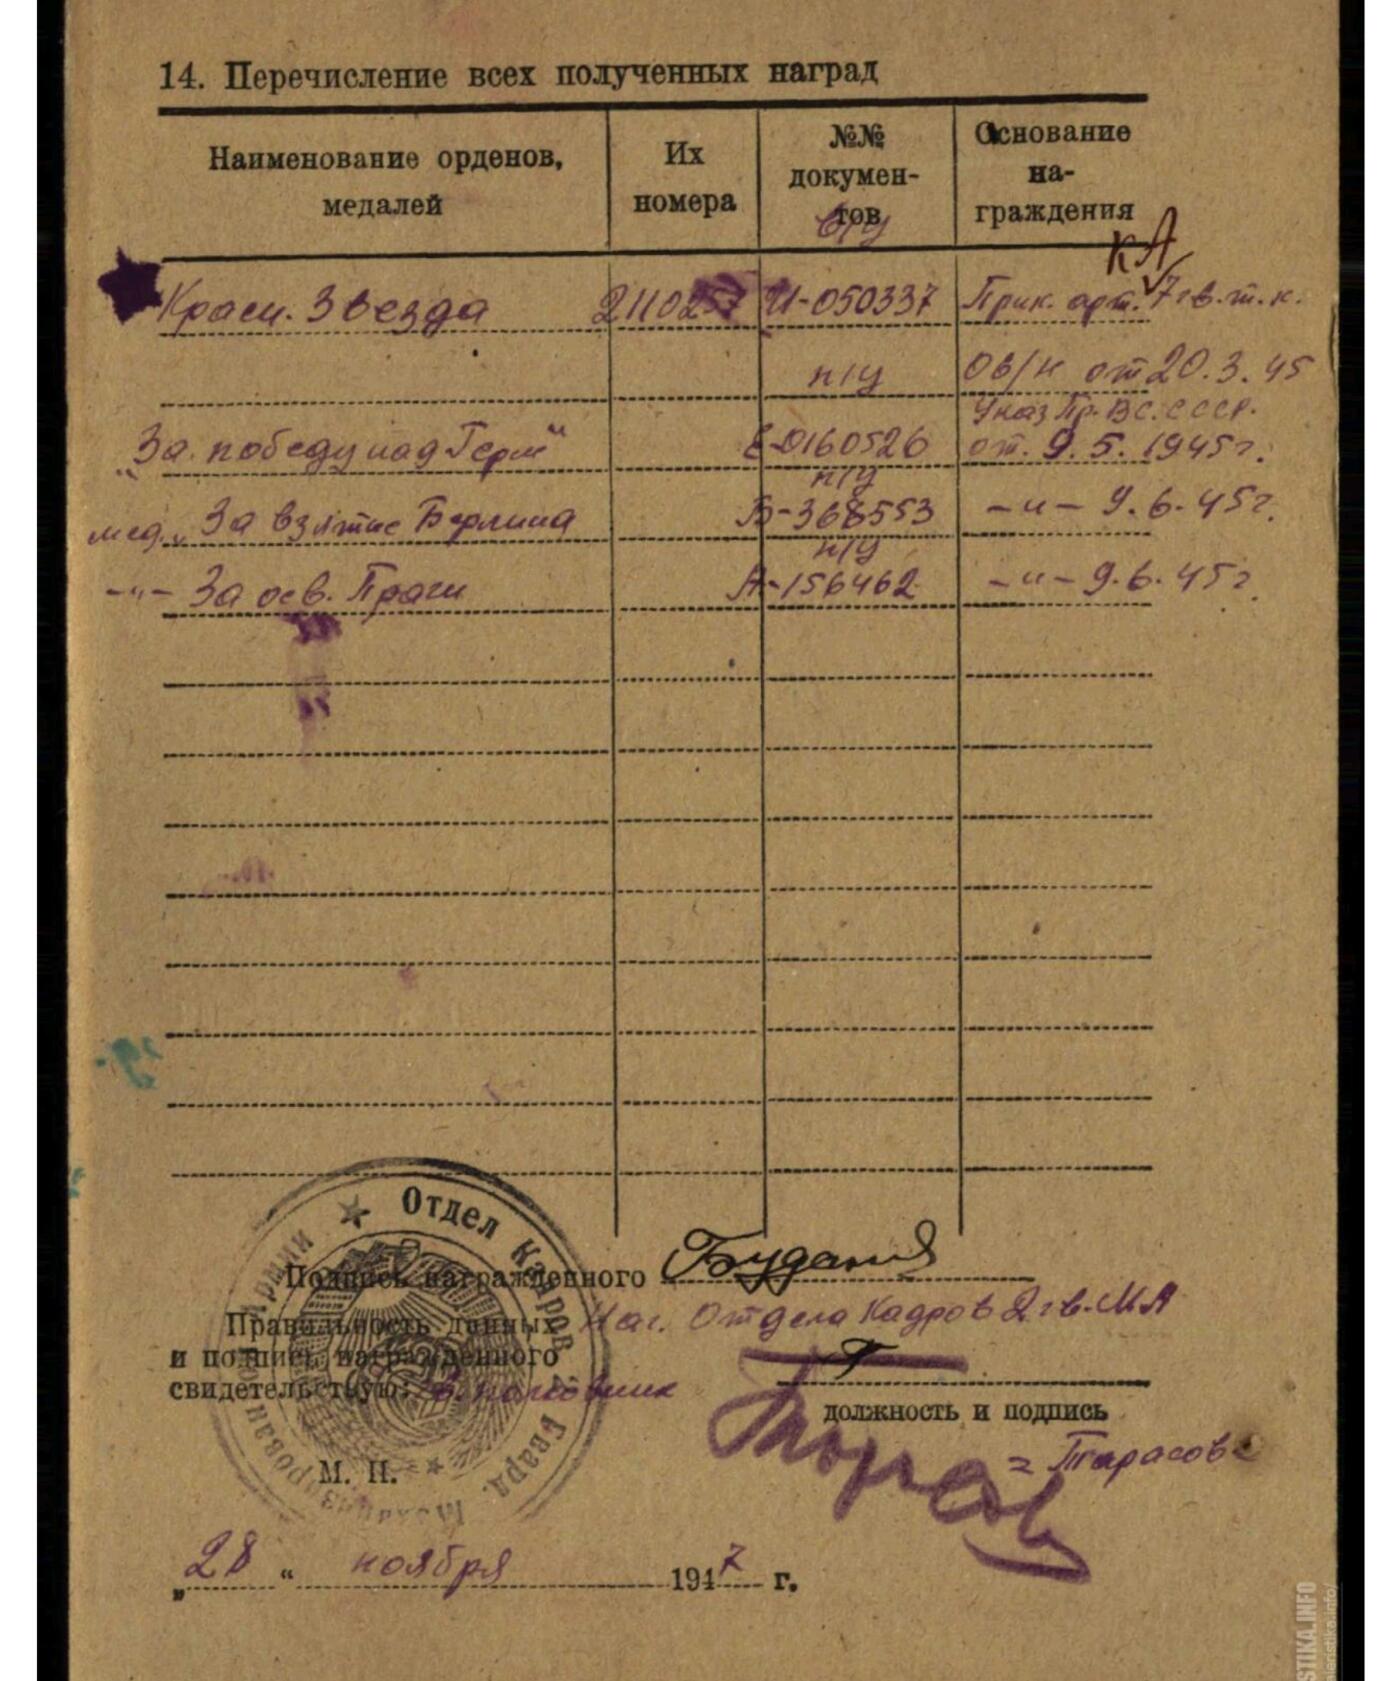 14. Перечисление всех полученных наград
Наименование орденов, медалей
Их номера
№№ документов
Основание награждения
б/у
КА
Красн. Звезда 2110257 И-050337 Прик. арт. 7 гв.т.к.
п/у Об/н от 20.3.45
Указ Пр. ВС. СССР.
„За победу над Герм“ Е-0160526 от. 9.5.1945г.
п/у
мед. „За взятие Берлина Б-368553 -"- 9.6.45г.
п/у
-"- За осв. Праги А-156462 -"- 9.6.45г.
★ Отдел Кадров 2 Гвард. Механизированной Армии
Подпись награжденного
Правильность данных Нач. Отдела Кадров 2 гв. МА
и подпись награжденного
свидетельствую: полковник
должность и подпись
= Тарасов =
М. П.
„28“ ноября 1947 г.
STIKA.INFO